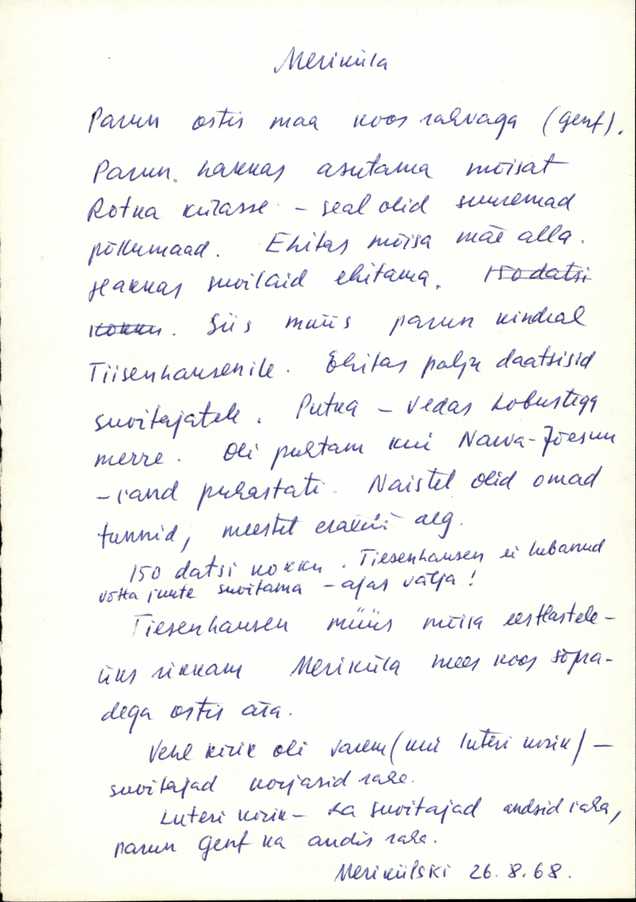 Meriküla
Parun ostis maa koos rahvaga (Genf).
Parun hakkas asutama mõisat
Rotka külasse – seal olid suuremad
põllumaad. Ehitas mõisa mäe alla.
Hakkas suvilaid ehitama. 150 datsi
kokku. Siis müüs parun kindral
Tiisenhausenile. Ehitas palju daatsisid
suvitajatele. Putka – vedas hobustega
merre. Oli puhtam kui Narva-Jõesuu
– rand puhastati. Naistel olid omad
tunnid, meestel eraldi aeg.
150 datsi kokku. Tiesenhausen ei lubanud
võtta juute suvitama – ajas välja!
Tiesenhausen müüs mõisa eestlastele –
üks rikkam Meriküla mees koos sõpra-
dega ostis ära.
Vene kirik oli varem (kui luteri kirik) –
suvitajad korjasid raha.
Luteri kirik – ka suvitajad andsid raha,
parun Genf ka andis raha.
Merikülski 26.8.68.